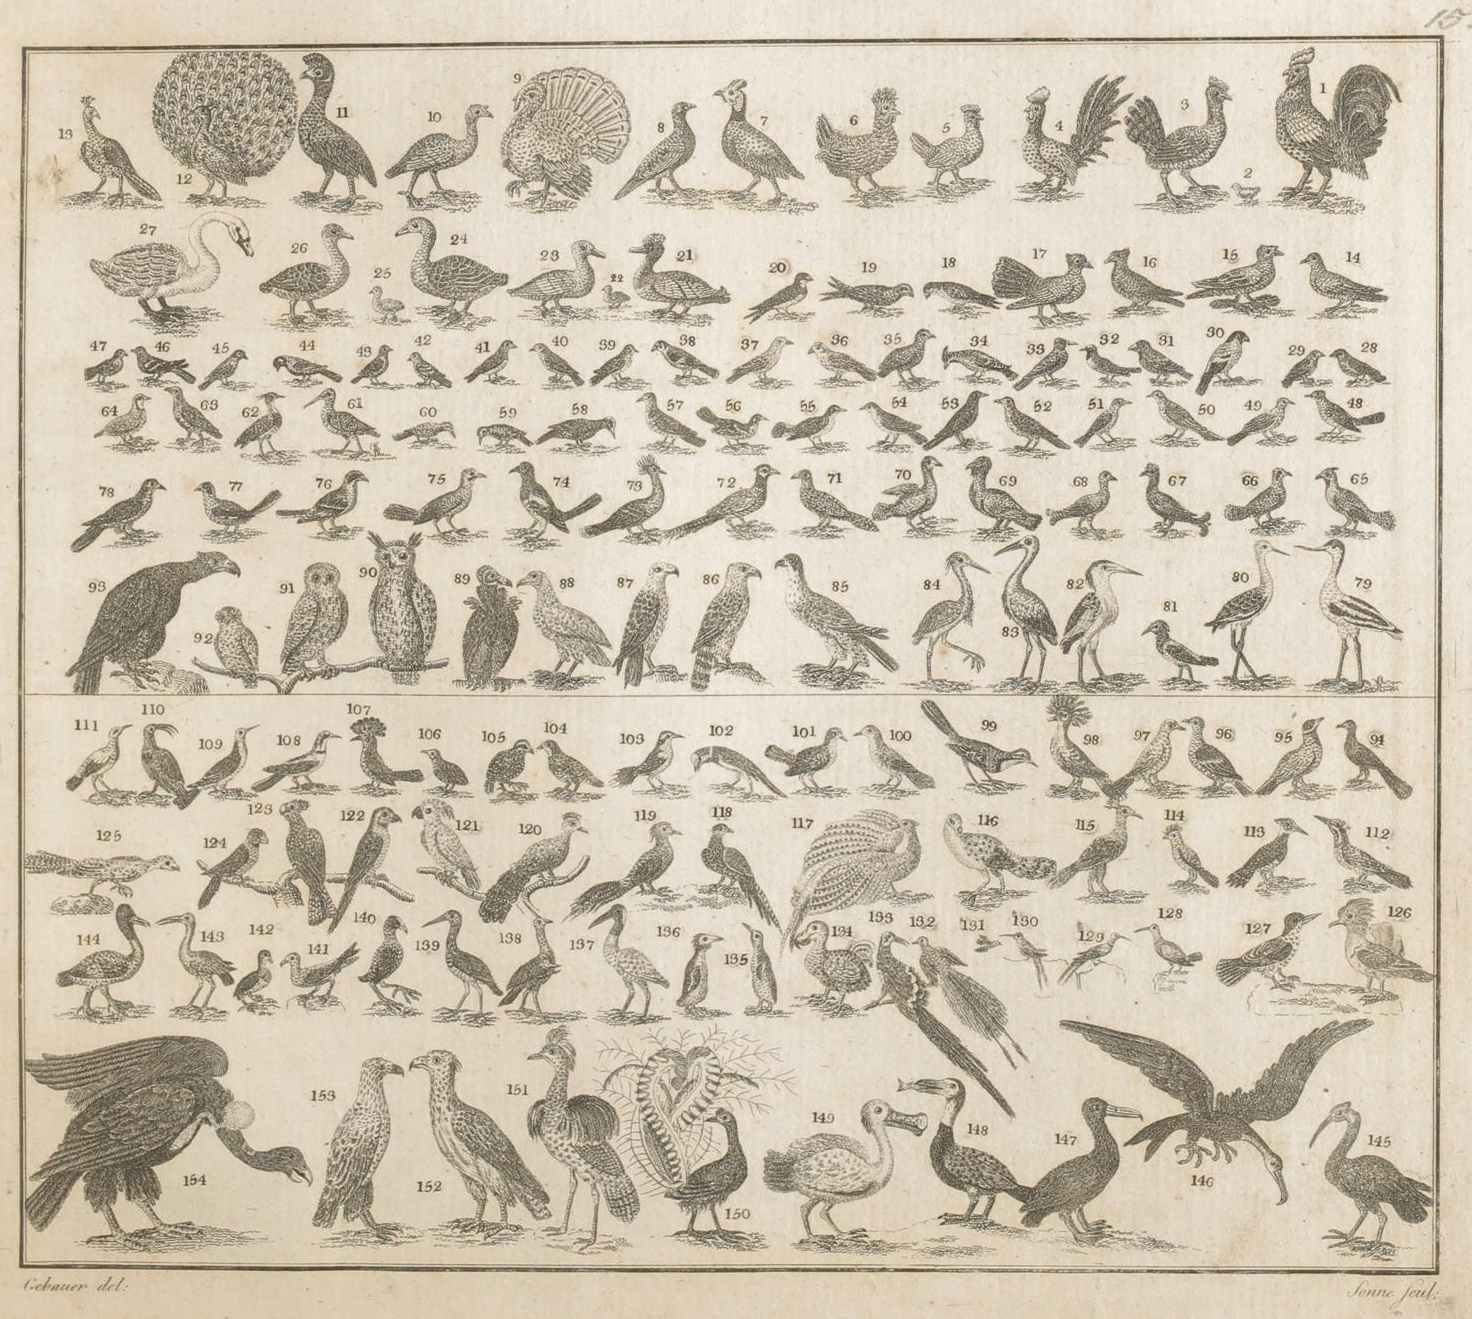 15.
13 12 11 10 9 8 7 6 5 4 3 2 1
27 26 25 24 23 22 21 20 19 18 17 16 15 14
47 46 45 44 43 42 41 40 39 38 37 36 35 34 33 32 31 30 29 28
64 63 62 61 60 59 58 57 56 55 54 53 52 51 50 49 48
78 77 76 75 74 73 72 71 70 69 68 67 66 65
93 92 91 90 89 88 87 86 85 84 83 82 81 80 79
111 110 109 108 107 106 105 104 103 102 101 100 99 98 97 96 95 94
125 124 123 122 121 120 119 118 117 116 115 114 113 112
144 143 142 141 140 139 138 137 136 135 134 133 132 131 130 129 128 127 126
154 153 152 151 150 149 148 147 146 145
Gebauer del: Senne sculː